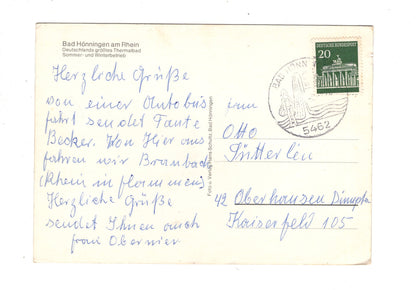 Bad Hönningen am Rhein
Deutschlands größtes Thermalbad
Sommer- und Winterbetrieb
Herzliche Grüße
von einer Autobus
fahrt sendet Tante
Becker. Von Hier aus
fahren wir Braubach
(Rhein in flammen)
Herzliche Grüße
sendet Ihnen auch
frau Obernier
DEUTSCHE BUNDESPOST
20
BAD HÖNN
5462
Otto
42 Oberhausen
Kaiserfeld 105